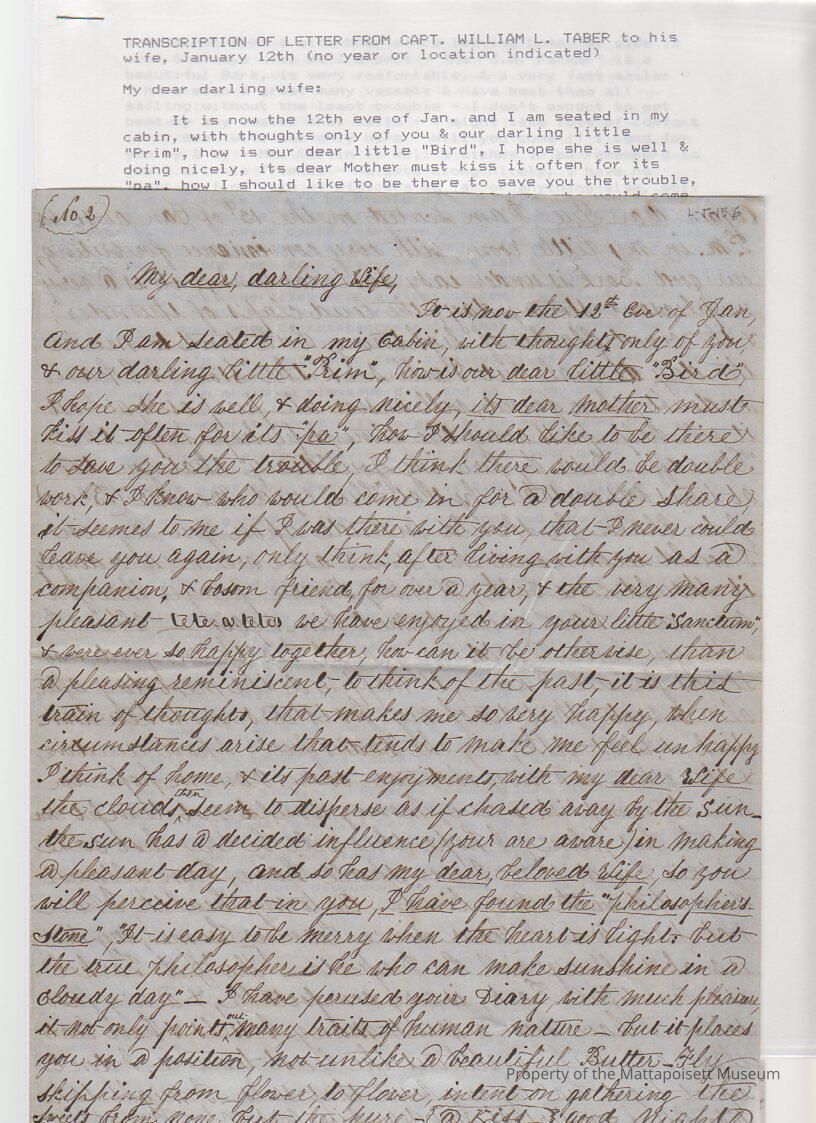 TRANSCRIPTION OF LETTER FROM CAPT. WILLIAM L. TABER to his
wife, January 12th (no year or location indicated)
My dear darling wife:
It is now the 12th eve of Jan. and I am seated in my
cabin, with thoughts only of you & our darling little
"Prim", how is our dear little "Bird", I hope she is well &
doing nicely, its dear Mother must kiss it often for its
"pa", how I should like to be there to save you the trouble,
(No. 2)
My dear, darling Wife,
It is now the 12th Eve of Jan,
And I am seated in my Cabin, with thoughts only of you
& our darling little "Prim", how is our dear little "Bird",
I hope she is well, & doing nicely, its dear Mother must
kiss it often for its "pa", how I should like to be there
to save you the trouble, I think there would be double
work, & I know who would come in for a double share,
it seems to me if I was there with you, that I never could
leave you again, only think, after living with you as a
companion, & bosom friend, for over a year, & the very many
pleasant tete a tetes we have enjoyed in your little "Sanctum",
& were ever so happy together, how can it be otherwise, than
a pleasing reminiscent, to think of the past, it is this
train of thoughts, that makes me so very happy, when
circumstances arise that tends to make me feel unhappy
I think of home, & its past enjoyments, with my dear Wife
the clouds then seem to disperse as if chased away by the Sun_
the sun has a decided influence (your are aware) in making
a pleasant day, and so has my dear, beloved Wife, so you
will perceive that in you, I have found the "philosopher's
stone" "It is easy to be merry when the heart is light: but
the true philosopher is he who can make sunshine in a
cloudy day" _ I have perused your Diary with much pleasure,
it not only points out many traits of human nature _ but it places
you in a position, not unlike a beautiful Butter-Fly
skipping from flower, to flower, intent on gathering the
sweets from none but the pure - a Kiss & good Night
Property of the Mattapoisett Museum